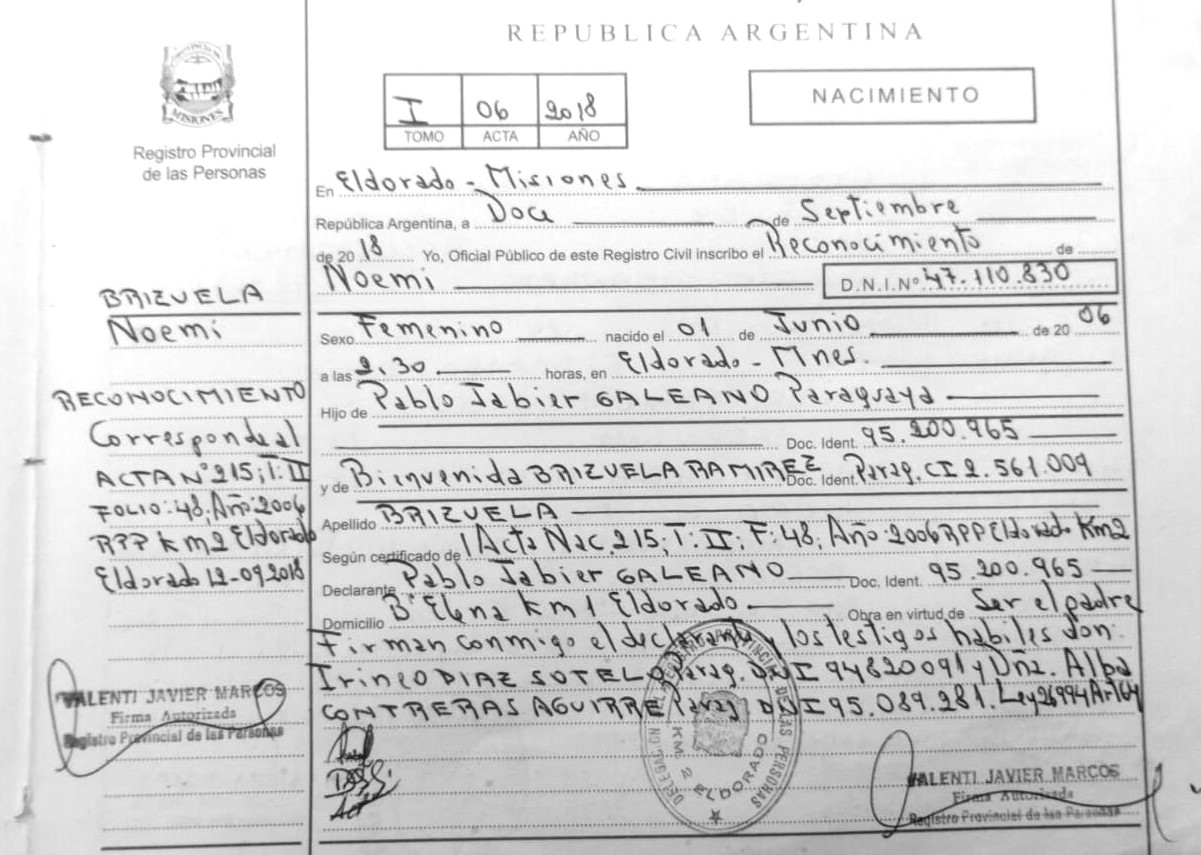 REPUBLICA ARGENTINA
PROVINCIA DE
MISIONES
Registro Provincial
de las Personas
I 06 2018
TOMO ACTA AÑO
NACIMIENTO
En Eldorado - Misiones
República Argentina, a Doce de Septiembre
de 20 18 Yo, Oficial Público de este Registro Civil inscribo el Reconocimiento de
Noemi D.N.I.Nº 47.110.830
Sexo Femenino nacido el 01 de Junio de 20 06
a las 2.30 horas, en Eldorado - Mnes.
Hijo de Pablo Jabier GALEANO Paraguaya
Doc. Ident. 95.200.965
y de Bienvenida BRIZUELA RAMIREZ Doc. Ident. Parag. CI 2.561.009
Apellido BRIZUELA
Según certificado de Acta Nac. 215; T: II; F: 48; Año 2006 RPP Eldorado Km2
Declarante Pablo Jabier GALEANO Doc. Ident. 95.200.965
Domicilio Bº Elena Km 1 Eldorado Obra en virtud de Ser el padre
Firman conmigo el declarante y los testigos habiles don:
Irineo DIAZ SOTELO Parag. DNI 94820091 y Dña. Alba
CONTRERAS AGUIRRE Parag DNI 95.089.281. Ley 26994 Art 64
BRIZUELA
Noemi
RECONOCIMIENTO
Corresponde al
ACTA Nº 215; T: II
FOLIO: 48; Año: 2006
RPP Km 2 Eldorado
Eldorado 12-09-2018
VALENTI JAVIER MARCOS
Firma Autorizada
Registro Provincial de las Personas
DE LAS PERSONAS
DELEGACION
KM. 2 ELDORADO
VALENTI JAVIER MARCOS
Firma Autorizada
Registro Provincial de las Personas